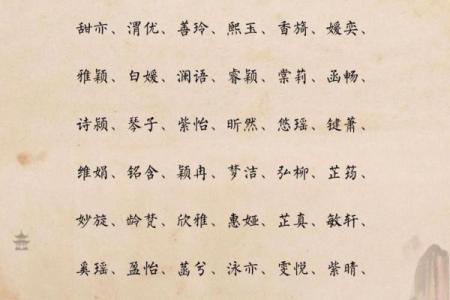 甜亦、渭优、善玲、熙玉、香旖、媛奕、
雅颖、白媛、澜语、睿颖、棠莉、函畅、
诗颍、琴子、紫怡、昕然、悠瑶、键萧、
维娟、铭含、颖冉、梦洁、弘柳、芷筠、
妙旋、龄梵、欣雅、惠娅、芷真、敏轩、
奚瑶、盈怡、菡兮、泳亦、雯悦、紫晴、